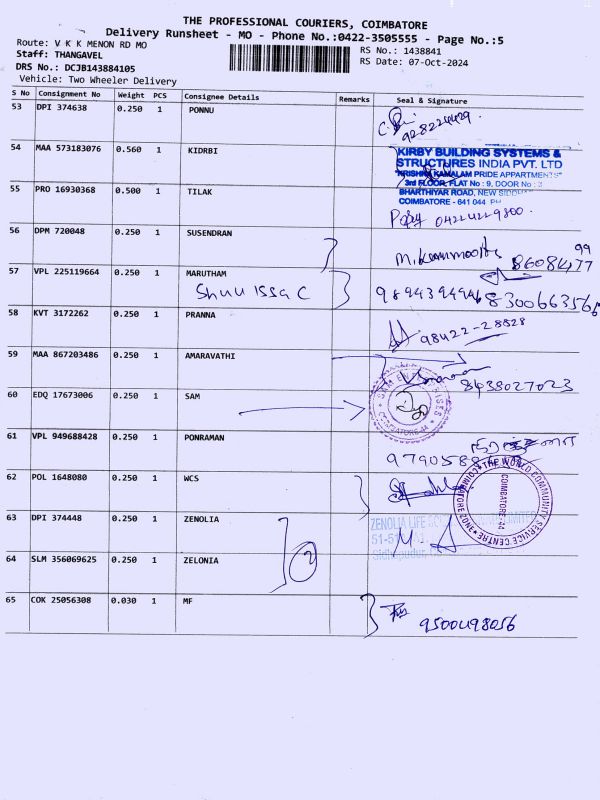 THE PROFESSIONAL COURIERS, COIMBATORE
Delivery Runsheet - MO - Phone No.:0422-3505555 - Page No.:5
Route: V K K MENON RD MO
RS No.: 1438841
Staff: THANGAVEL
RS Date: 07-Oct-2024
DRS No.: DCJB143884105
Vehicle: Two Wheeler Delivery
S No Consignment No Weight PCS Consignee Details Remarks Seal & Signature
53 DPI 374638 0.250 1 PONNU
54 MAA 573183076 0.560 1 KIDRBI
KIRBY BUILDING SYSTEMS &
STRUCTURES INDIA PVT. LTD
"KRISHNA KAMALAM PRIDE APPARTMENTS"
3rd FLOOR, FLAT No : 9, DOOR No :
BHARTHIYAR ROAD, NEW
COIMBATORE - 641 044
55 PRO 16930368 0.500 1 TILAK
04224229800
56 DPM 720048 0.250 1 SUSENDRAN
57 VPL 225119664 0.250 1 MARUTHAM
9894394946 8300663566
58 KVT 3172262 0.250 1 PRANNA
98422-28828
59 MAA 867203486 0.250 1 AMARAVATHI
8438027023
60 EDQ 17673006 0.250 1 SAM
COIMBATORE-44
61 VPL 949688428 0.250 1 PONRAMAN
62 POL 1648080 0.250 1 WCS
THE WORLD COMMUNITY SERVICE CENTRE
COIMBATORE-44
63 DPI 374448 0.250 1 ZENOLIA
ZENOLIA LIFE
64 SLM 356069625 0.250 1 ZELONIA
2
65 COK 25056308 0.030 1 MF
9500498056